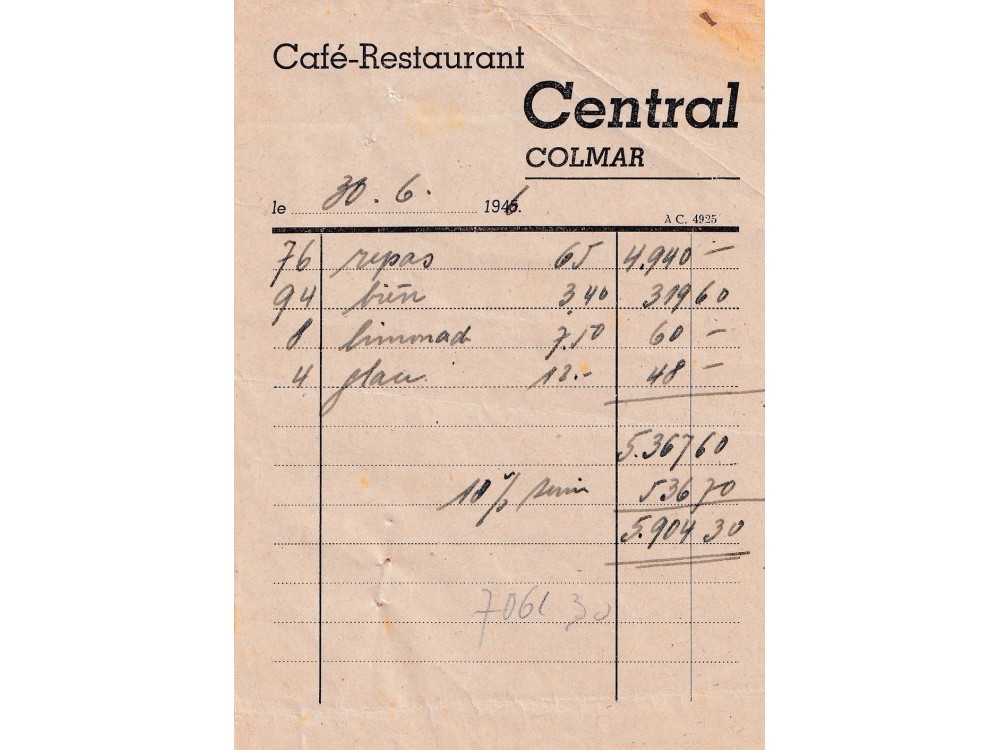 Café-Restaurant
Central
COLMAR
le 30. 6. 1946.
A C. 4925
76 repas 65 4.940 —
94 bièr 3,40 319 60
8 limonad 7.50 60 —
4 glace 12.- 48 —
5.367 60
10% 536 70
5.904 30
30